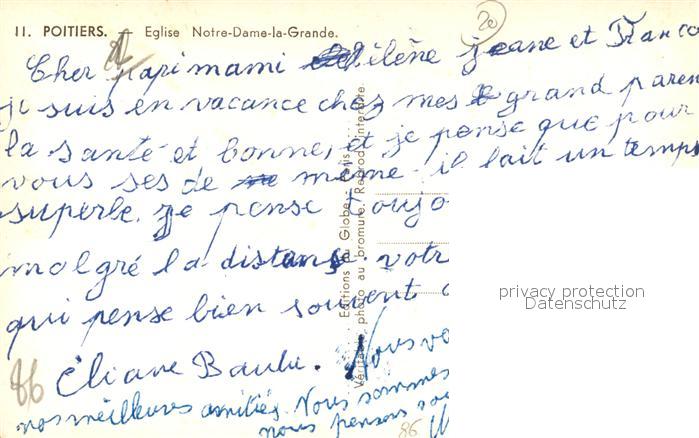 11. POITIERS. — Eglise Notre-Dame-la-Grande.
20
Cher papi mami élène jeane et Franco
je suis en vacance chez mes grand paren
la santé et bonne, et je pense que pour
vous ses de même. il fait un temps
superbe. je pense toujo
malgré la distans. votr
qui pense bien souvent
Éliane
Nous vo
nos meilleures amitiés. Nous sommes
nous pensons sou
86
86
Editions du Globe
Véritable photo au bromure. Reprod. interdite
privacy protection
Datenschutz